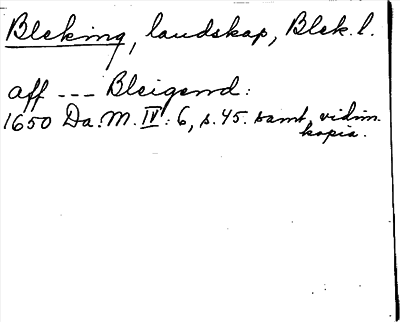 Bleking, landskap, Blek. l.
aff --- Bleigend:
1650 Da. M. IV: 6, s. 45. samt, vidim.
kopia.